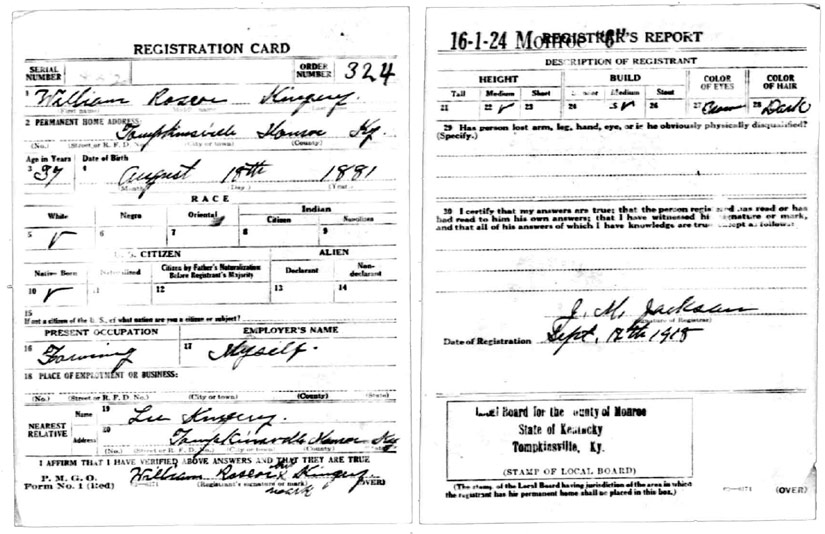 REGISTRATION CARD
SERIAL NUMBER
ORDER NUMBER 324
1 William Roscoe Kingery.
2 PERMANENT HOME ADDRESS:
Tompkinsville Monroe Ky.
(No.) (Street or R. F. D. No.) (City or town) (County)
Age in Years Date of Birth
3 37 4 August 18th 1881
(Month) (Day) (Year)
RACE
White Negro Oriental Indian
Citizen Noncitizen
5 6 7 8 9
U. S. CITIZEN ALIEN
Native Born Naturalized Citizen by Father's Naturalization Before Registrant's Majority Declarant Non-declarant
10 11 12 13 14
15
If not a citizen of the U. S., of what nation are you a citizen or subject?
PRESENT OCCUPATION EMPLOYER'S NAME
16 Farming 17 Myself.
18 PLACE OF EMPLOYMENT OR BUSINESS:
(No.) (Street or R. F. D. No.) (City or town) (County) (State)
NEAREST RELATIVE
Name 19 Kingery.
Address 20 Tompkinsville Monroe Ky
(No.) (Street or R. F. D. No.) (City or town) (County)
I AFFIRM THAT I HAVE VERIFIED ABOVE ANSWERS AND THAT THEY ARE TRUE
P. M. G. O.
Form No. 1 (Red)
William Roscoe his x Kingery
mark
(Registrant's signature or mark) (OVER)
16-1-24 Monroe
REGISTRAR'S REPORT
DESCRIPTION OF REGISTRANT
HEIGHT BUILD COLOR OF EYES COLOR OF HAIR
Tall Medium Short Slender Medium Stout
21 22 23 24 25 26 27 28 Dark
29 Has person lost arm, leg, hand, eye, or is he obviously physically disqualified?
(Specify.)
30 I certify that my answers are true; that the person registered has read or has
had read to him his own answers; that I have witnessed his signature or mark,
and that all of his answers of which I have knowledge are true, except as follows:
J. M. Jackson
(Signature of Registrar)
Date of Registration Sept. 12th 1918
Local Board for the County of Monroe
State of Kentucky
Tompkinsville, Ky.
(STAMP OF LOCAL BOARD)
(The stamp of the Local Board having jurisdiction of the area in which
the registrant has his permanent home shall be placed in this box.)
(OVER)